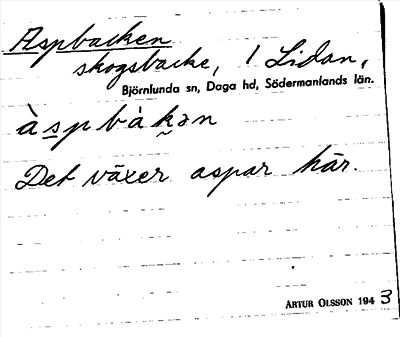 Aspbacken
skogsbacke, 1 Lidan,
Björnlunda sn, Daga hd, Södermanlands län.
àspbàkən
Det växer aspar här.
ARTUR OLSSON 1943